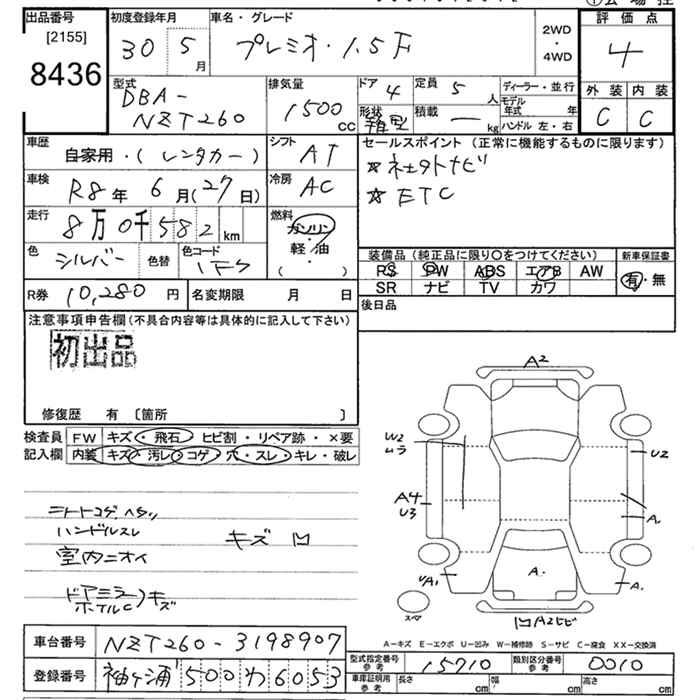 出品番号 初度登録年月 車名・グレード 評価点
[2155]
8436 30 5月 プレミオ・1.5F 2WD・4WD 4
型式 排気量 ドア 4 定員 5人 ディーラー・並行 外装 内装
DBA-NZT260 1500cc 形状 箱型 積載 ー kg モデル年式 年 C C
ハンドル 左・右
車歴 自家用・(レンタカー) シフト AT セールスポイント (正常に機能するものに限ります)
車検 R8年 6月(27日) 冷房 AC ☆ネットナビ
走行 8万0千582km 燃料 ガソリン・軽油 ( ) ☆ETC
色 シルバー 色替 色コード 1F7 装備品(純正品に限り○をつけてください) 新車保証書
PS PW ABS エアB AW 有・無
R券 10,280円 名変期限 月 日 SR ナビ TV カワ
注意事項申告欄(不具合内容等は具体的に記入して下さい) 後日品
初出品
修復歴 有 〔箇所 〕
検査員 FW キズ・飛石・ヒビ割・リペア跡・×要
記入欄 内装 キズ・汚レ・コゲ・穴・スレ・キレ・破レ
シートコゲ、ヘタリ
ハンドルスレ
室内ニオイ
キズ 凹
ドアミラー
ホイルC
キズ
A2
W2
ムラ
U2
A4
U3
A
A.
A1
A.
スペア
凹A2ヒビ
A-キズ E-エクボ U-凹み W-補修跡 S-サビ C-腐食 XX-交換済
車台番号 NZT260-3198907
登録番号 袖ヶ浦 500 わ 6053
型式指定番号 参考 15710 類別区分番号 参考 0010
車庫証明用 参考 長さ cm 幅 cm 高さ cm